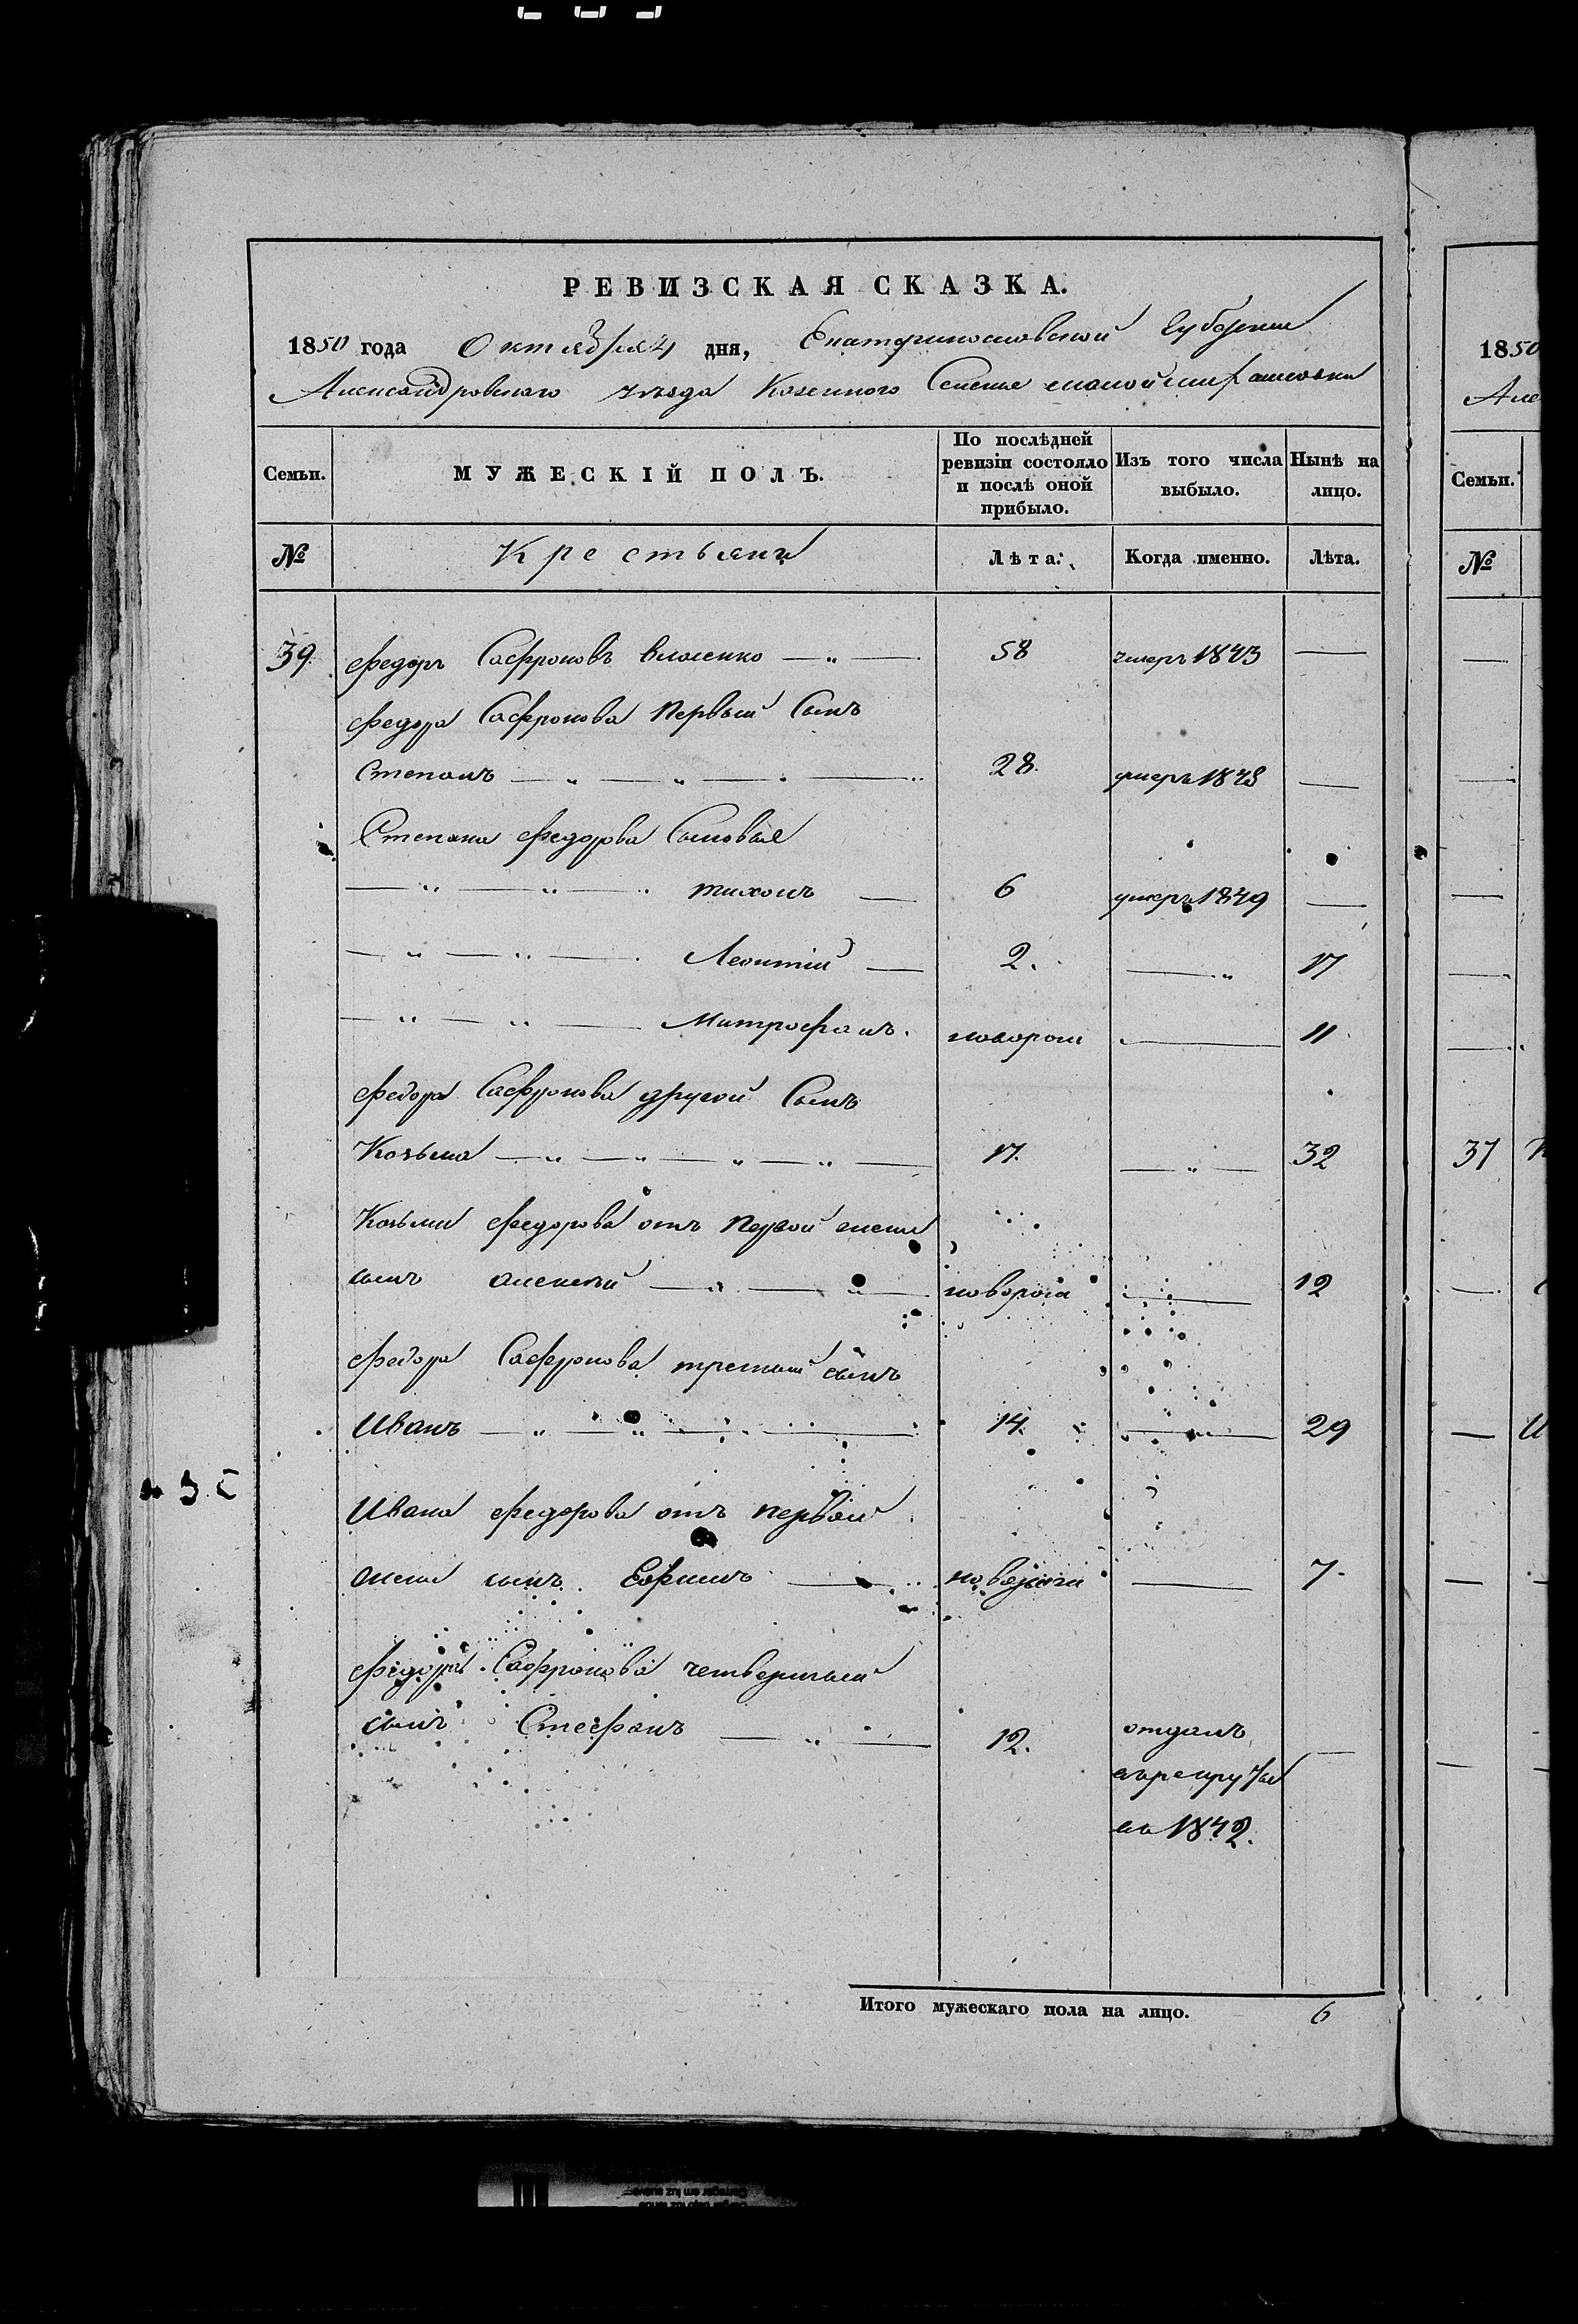 РЕВИЗСКАЯ СКАЗКА.
1850 года Октября 4 дня, Екатеринославской Губернии
Александровского уезда Козенного Селения
Семьи. МУЖЕСКІЙ ПОЛЪ. По послѣдней ревизіи состояло и послѣ оной прибыло. Изъ того числа выбыло. Нынѣ на лицо.
№ Крестьяни Лѣта. Когда именно. Лѣта.
39 Федоръ Сафроновъ Власенко 58 умеръ 1843 —
Федора Сафронова Первый Сынъ
Степанъ 28. умеръ 1848 —
Степана Федорова Сыновья
Тихонъ — 6 умеръ 1849 —
Леонтій — 2. — 17
Митрофанъ. новорож — 11
Федора Сафронова другой Сынъ
Козьма 17. — 32
Козьми Федорова отъ Первой жени
сынъ Алексей новорож — 12
Федора Сафронова третий сынъ
Иванъ 14. — 29
Ивана Федорова отъ первой
жени сынъ Ефимъ новорож — 7.
Федора Сафронова четвертый
сынъ Стефанъ 12. отданъ —
в рекруты
въ 1842.
Итого мужескаго пола на лицо. 6
1850
Але
Семьи.
№
37
И